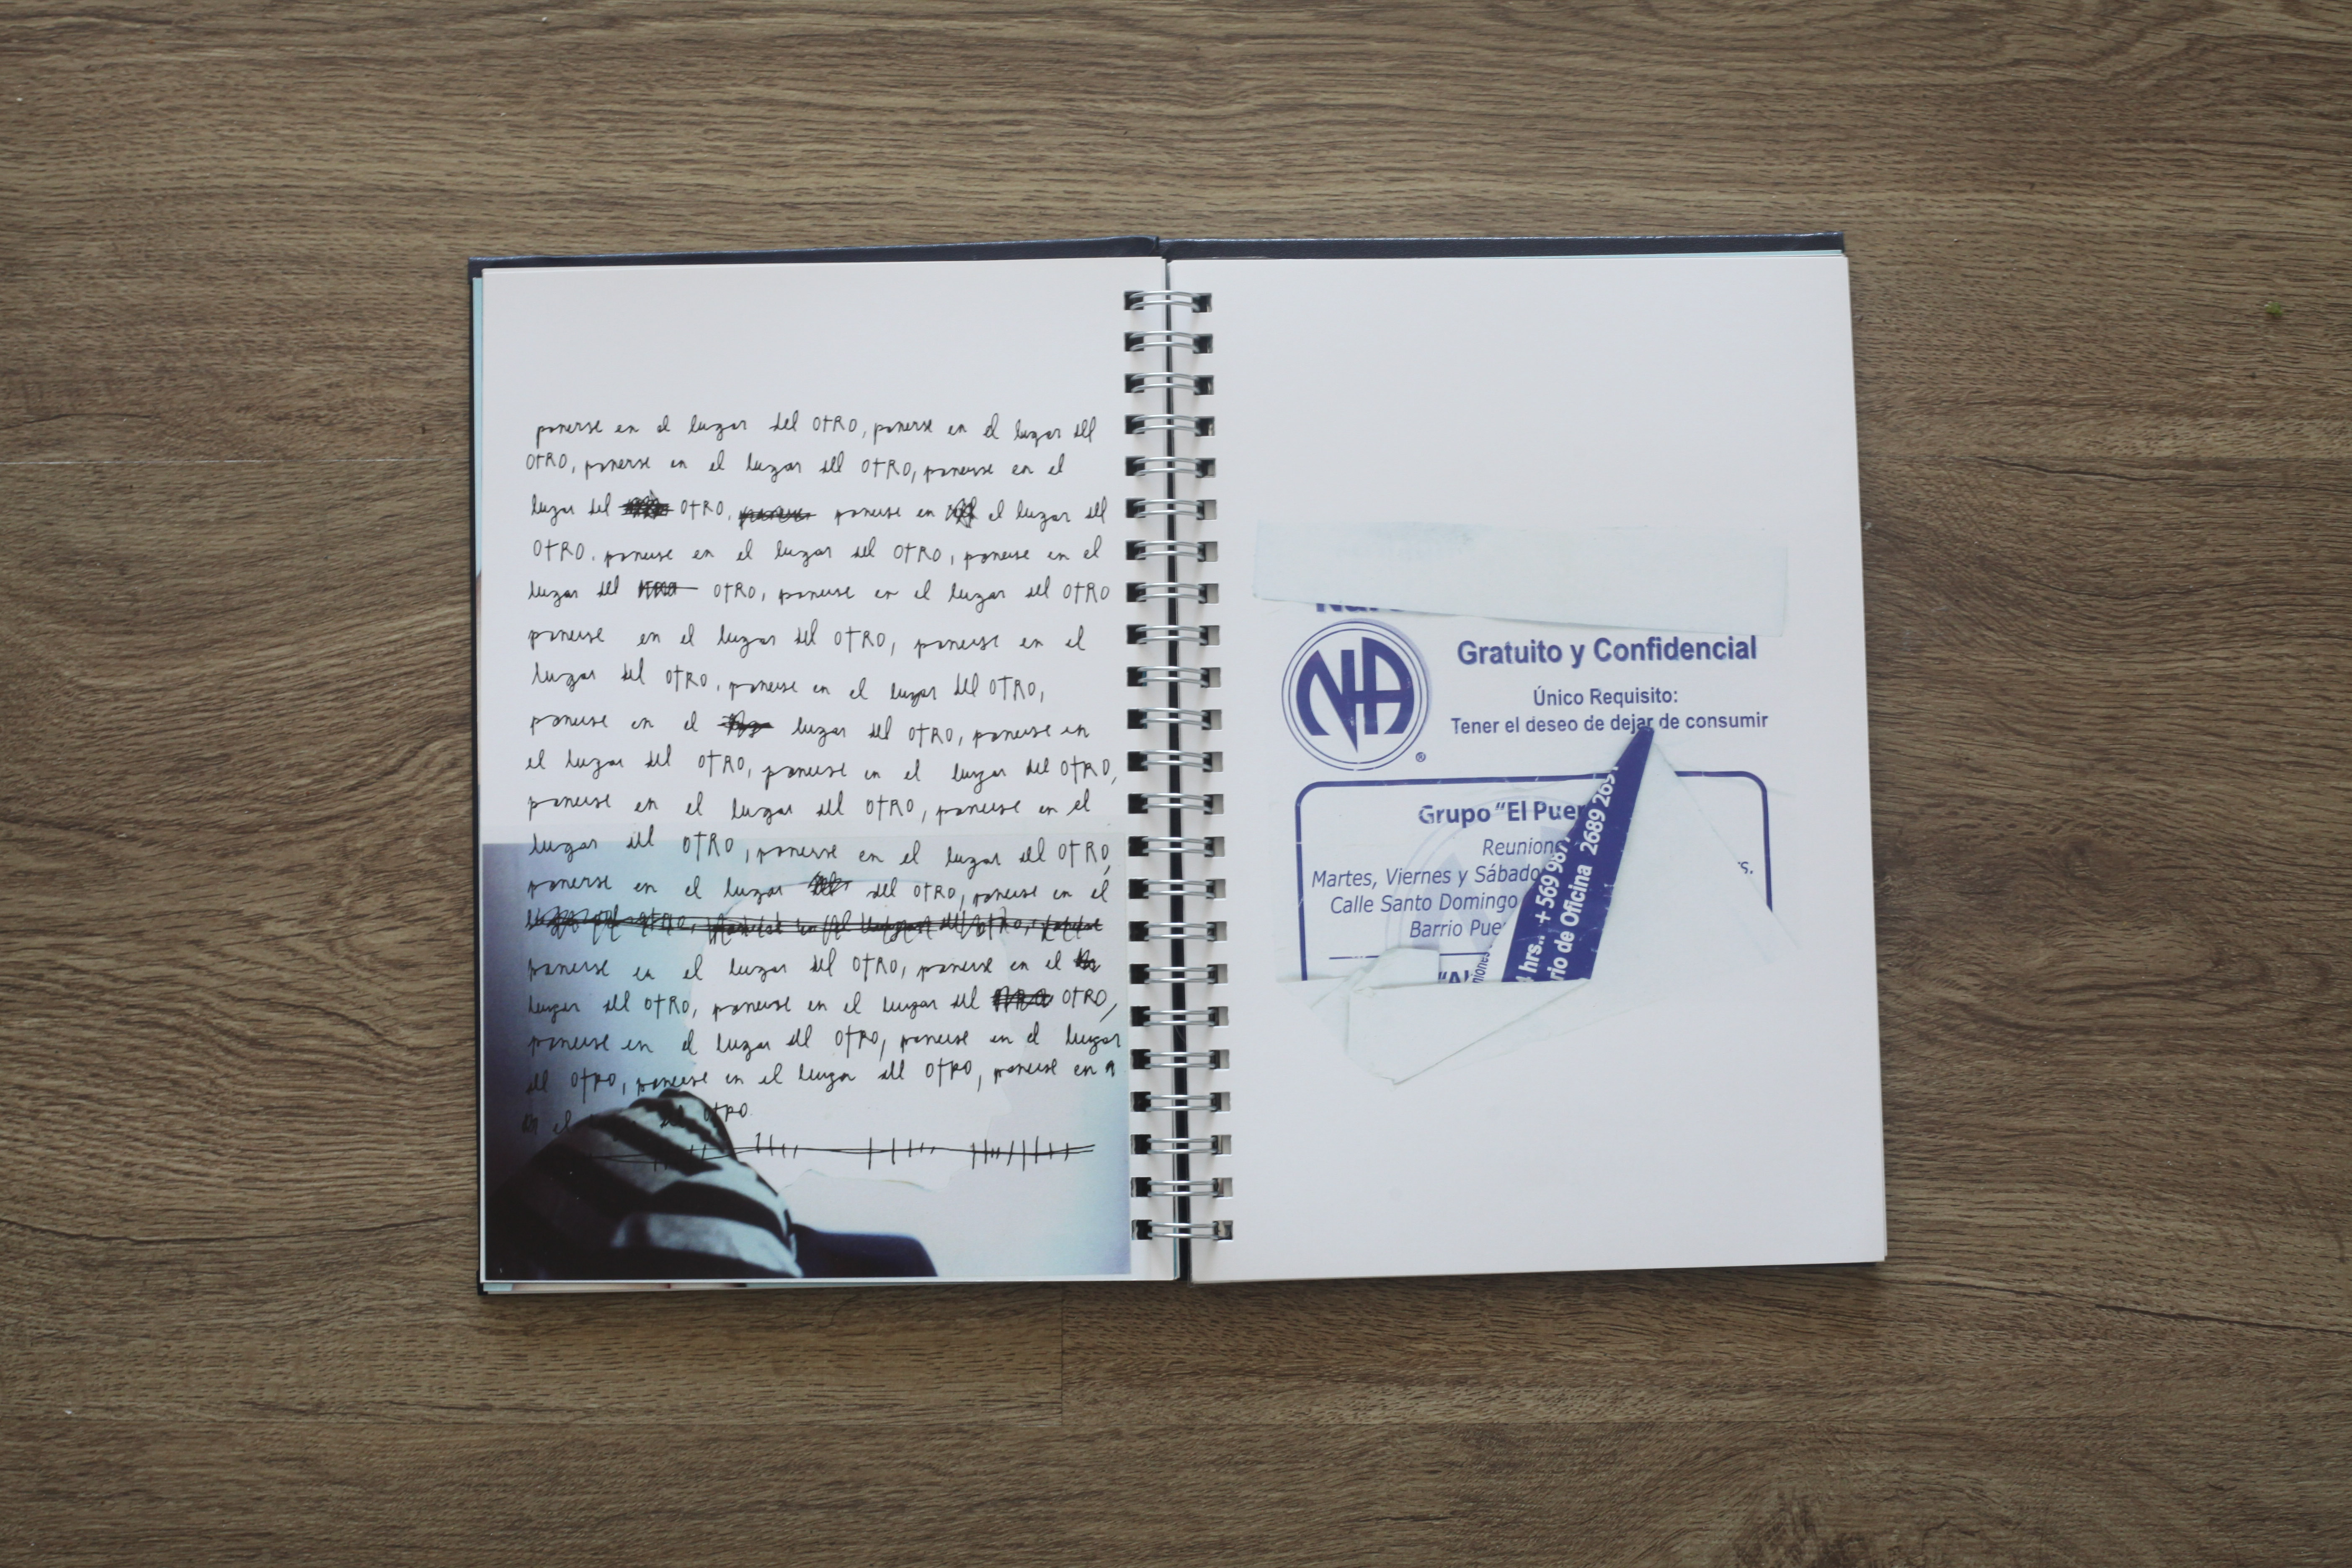 ponerse en el lugar del OTRO, ponerse en el lugar del
OTRO, ponerse en el lugar del OTRO, ponerse en el
lugar del OTRO, ponerse ponerse en el lugar del
OTRO. ponerse en el lugar del OTRO, ponerse en el
lugar del OTRO, ponerse en el lugar del OTRO
ponerse en el lugar del OTRO, ponerse en el
lugar del OTRO, ponerse en el lugar del OTRO,
ponerse en el lugar del OTRO, ponerse en
el lugar del OTRO, ponerse en el lugar del OTRO,
ponerse en el lugar del OTRO, ponerse en el
lugar del OTRO, ponerse en el lugar del OTRO,
ponerse en el lugar del OTRO, ponerse en el
lugar del OTRO, ponerse en el lugar del OTRO, ponerse
ponerse en el lugar del OTRO, ponerse en el
lugar del OTRO, ponerse en el lugar del OTRO,
ponerse en el lugar del OTRO, ponerse en el lugar
del OTRO, ponerse en el lugar del OTRO, ponerse en
el OTRO.
NA
®
Gratuito y Confidencial
Único Requisito:
Tener el deseo de dejar de consumir
Grupo "El Pue
Reunion
Martes, Viernes y Sábado
Calle Santo Domingo
Barrio Pue
hrs.. +569 987
rio de Oficina 2689 265
niones
"Al
s.